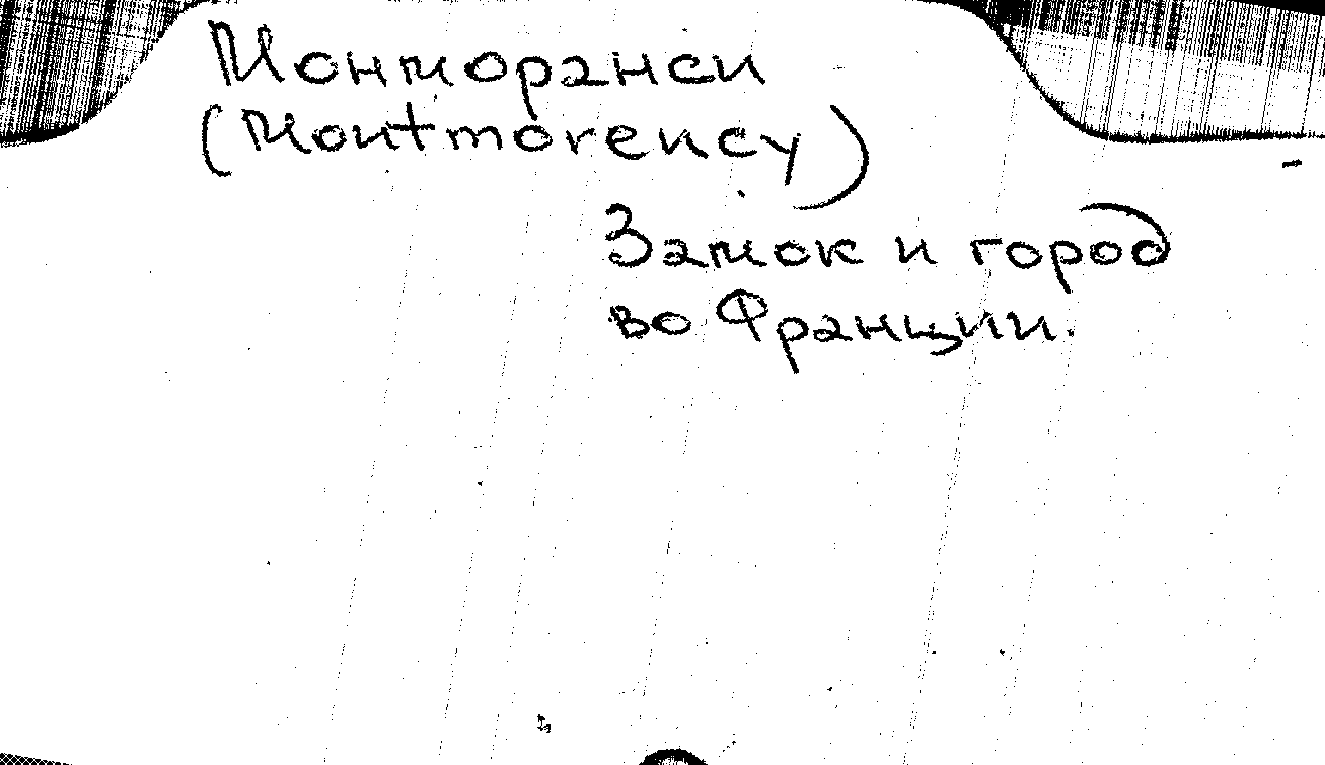 Монморанси
(Montmorency)
Замок и город
во Франции.